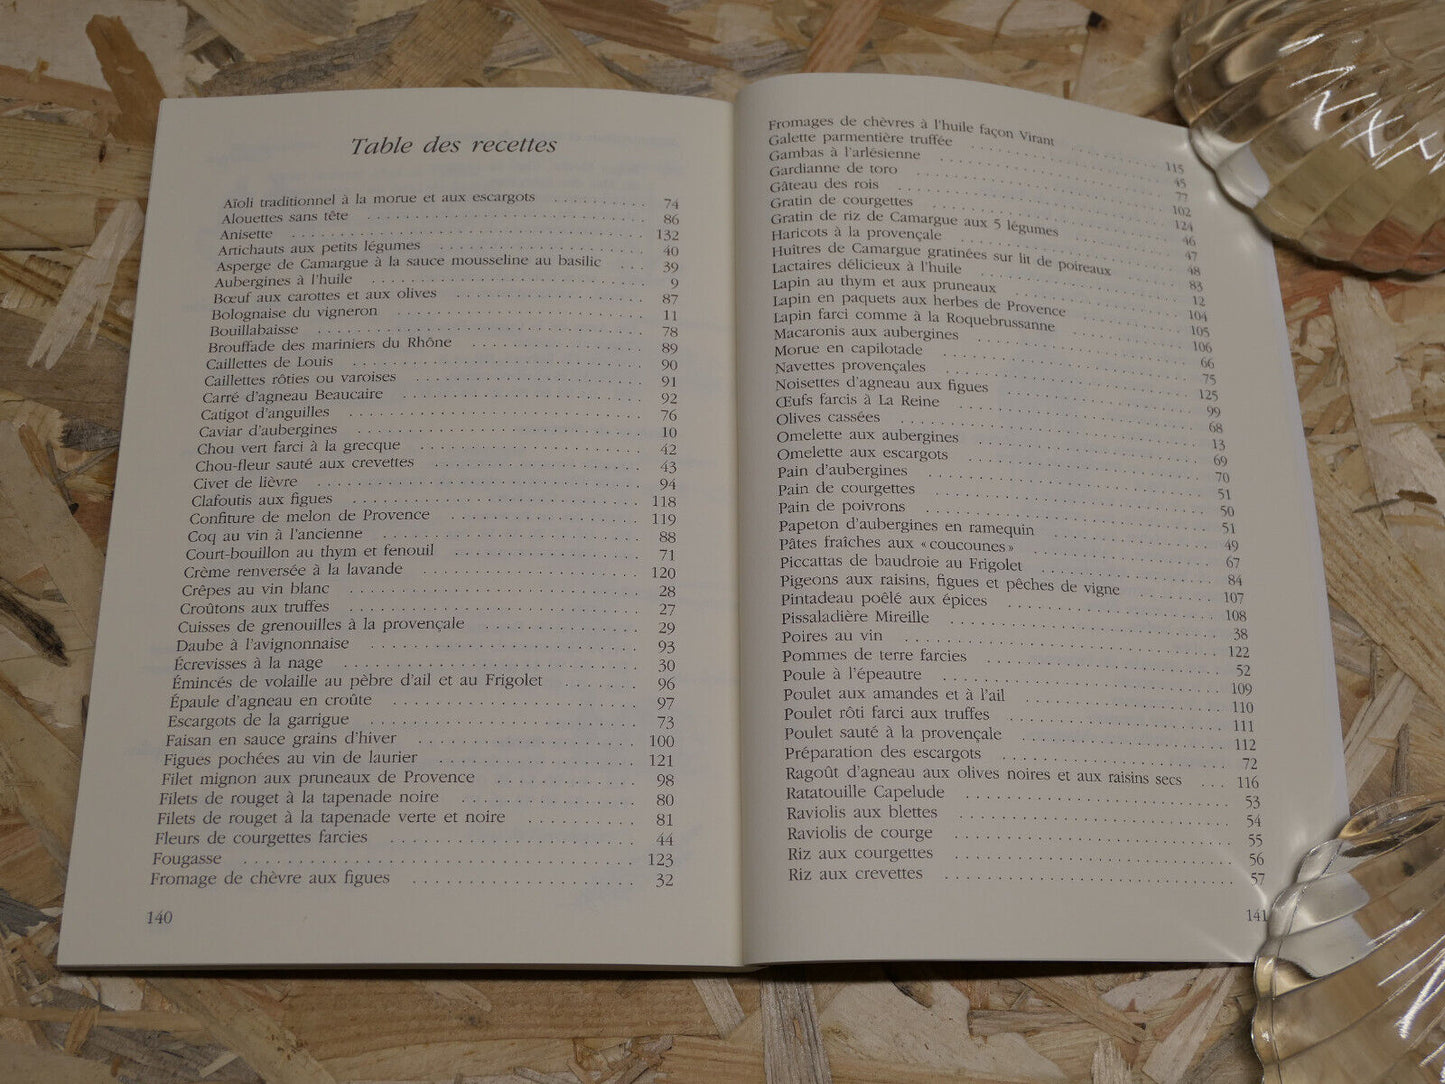 Table des recettes
Aïoli traditionnel à la morue et aux escargots . . . . . . . . . . 74
Alouettes sans tête . . . . . . . . . . 86
Anisette . . . . . . . . . . 132
Artichauts aux petits légumes . . . . . . . . . . 40
Asperge de Camargue à la sauce mousseline au basilic . . . 39
Aubergines à l'huile . . . . . . . . . . 9
Bœuf aux carottes et aux olives . . . . . . . . . . 87
Bolognaise du vigneron . . . . . . . . . . 11
Bouillabaisse . . . . . . . . . . 78
Brouffade des mariniers du Rhône . . . . . . . . . . 89
Caillettes de Louis . . . . . . . . . . 90
Caillettes rôties ou varoises . . . . . . . . . . 91
Carré d'agneau Beaucaire . . . . . . . . . . 92
Catigot d'anguilles . . . . . . . . . . 76
Caviar d'aubergines . . . . . . . . . . 10
Chou vert farci à la grecque . . . . . . . . . . 42
Chou-fleur sauté aux crevettes . . . . . . . . . . 43
Civet de lièvre . . . . . . . . . . 94
Clafoutis aux figues . . . . . . . . . . 118
Confiture de melon de Provence . . . . . . . . . . 119
Coq au vin à l'ancienne . . . . . . . . . . 88
Court-bouillon au thym et fenouil . . . . . . . . . . 71
Crème renversée à la lavande . . . . . . . . . . 120
Crêpes au vin blanc . . . . . . . . . . 28
Croûtons aux truffes . . . . . . . . . . 27
Cuisses de grenouilles à la provençale . . . . . . . . . . 29
Daube à l'avignonnaise . . . . . . . . . . 93
Écrevisses à la nage . . . . . . . . . . 30
Émincés de volaille au pèbre d'ail et au Frigolet . . . . . . . 96
Épaule d'agneau en croûte . . . . . . . . . . 97
Escargots de la garrigue . . . . . . . . . . 73
Faisan en sauce grains d'hiver . . . . . . . . . . 100
Figues pochées au vin de laurier . . . . . . . . . . 121
Filet mignon aux pruneaux de Provence . . . . . . . . . . 98
Filets de rouget à la tapenade noire . . . . . . . . . . 80
Filets de rouget à la tapenade verte et noire . . . . . . . . . . 81
Fleurs de courgettes farcies . . . . . . . . . . 44
Fougasse . . . . . . . . . . 123
Fromage de chèvre aux figues . . . . . . . . . . 32
140
Fromages de chèvres à l'huile façon Virant . . . . . . . . . . 115
Galette parmentière truffée . . . . . . . . . . 45
Gambas à l'arlésienne . . . . . . . . . . 77
Gardianne de toro . . . . . . . . . . 102
Gâteau des rois . . . . . . . . . . 124
Gratin de courgettes . . . . . . . . . . 46
Gratin de riz de Camargue aux 5 légumes . . . . . . . . . . 47
Haricots à la provençale . . . . . . . . . . 48
Huîtres de Camargue gratinées sur lit de poireaux . . . . . . . 83
Lactaires délicieux à l'huile . . . . . . . . . . 12
Lapin au thym et aux pruneaux . . . . . . . . . . 104
Lapin en paquets aux herbes de Provence . . . . . . . . . . 105
Lapin farci comme à la Roquebrussanne . . . . . . . . . . 106
Macaronis aux aubergines . . . . . . . . . . 66
Morue en capilotade . . . . . . . . . . 75
Navettes provençales . . . . . . . . . . 125
Noisettes d'agneau aux figues . . . . . . . . . . 99
Œufs farcis à La Reine . . . . . . . . . . 68
Olives cassées . . . . . . . . . . 13
Omelette aux aubergines . . . . . . . . . . 69
Omelette aux escargots . . . . . . . . . . 70
Pain d'aubergines . . . . . . . . . . 51
Pain de courgettes . . . . . . . . . . 50
Pain de poivrons . . . . . . . . . . 51
Papeton d'aubergines en ramequin . . . . . . . . . . 49
Pâtes fraîches aux « coucounes » . . . . . . . . . . 67
Piccattas de baudroie au Frigolet . . . . . . . . . . 84
Pigeons aux raisins, figues et pêches de vigne . . . . . . . . . . 107
Pintadeau poêlé aux épices . . . . . . . . . . 108
Pissaladière Mireille . . . . . . . . . . 38
Poires au vin . . . . . . . . . . 122
Pommes de terre farcies . . . . . . . . . . 52
Poule à l'épeautre . . . . . . . . . . 109
Poulet aux amandes et à l'ail . . . . . . . . . . 110
Poulet rôti farci aux truffes . . . . . . . . . . 111
Poulet sauté à la provençale . . . . . . . . . . 112
Préparation des escargots . . . . . . . . . . 72
Ragoût d'agneau aux olives noires et aux raisins secs . . . 116
Ratatouille Capelude . . . . . . . . . . 53
Raviolis aux blettes . . . . . . . . . . 54
Raviolis de courge . . . . . . . . . . 55
Riz aux courgettes . . . . . . . . . . 56
Riz aux crevettes . . . . . . . . . . 57
141